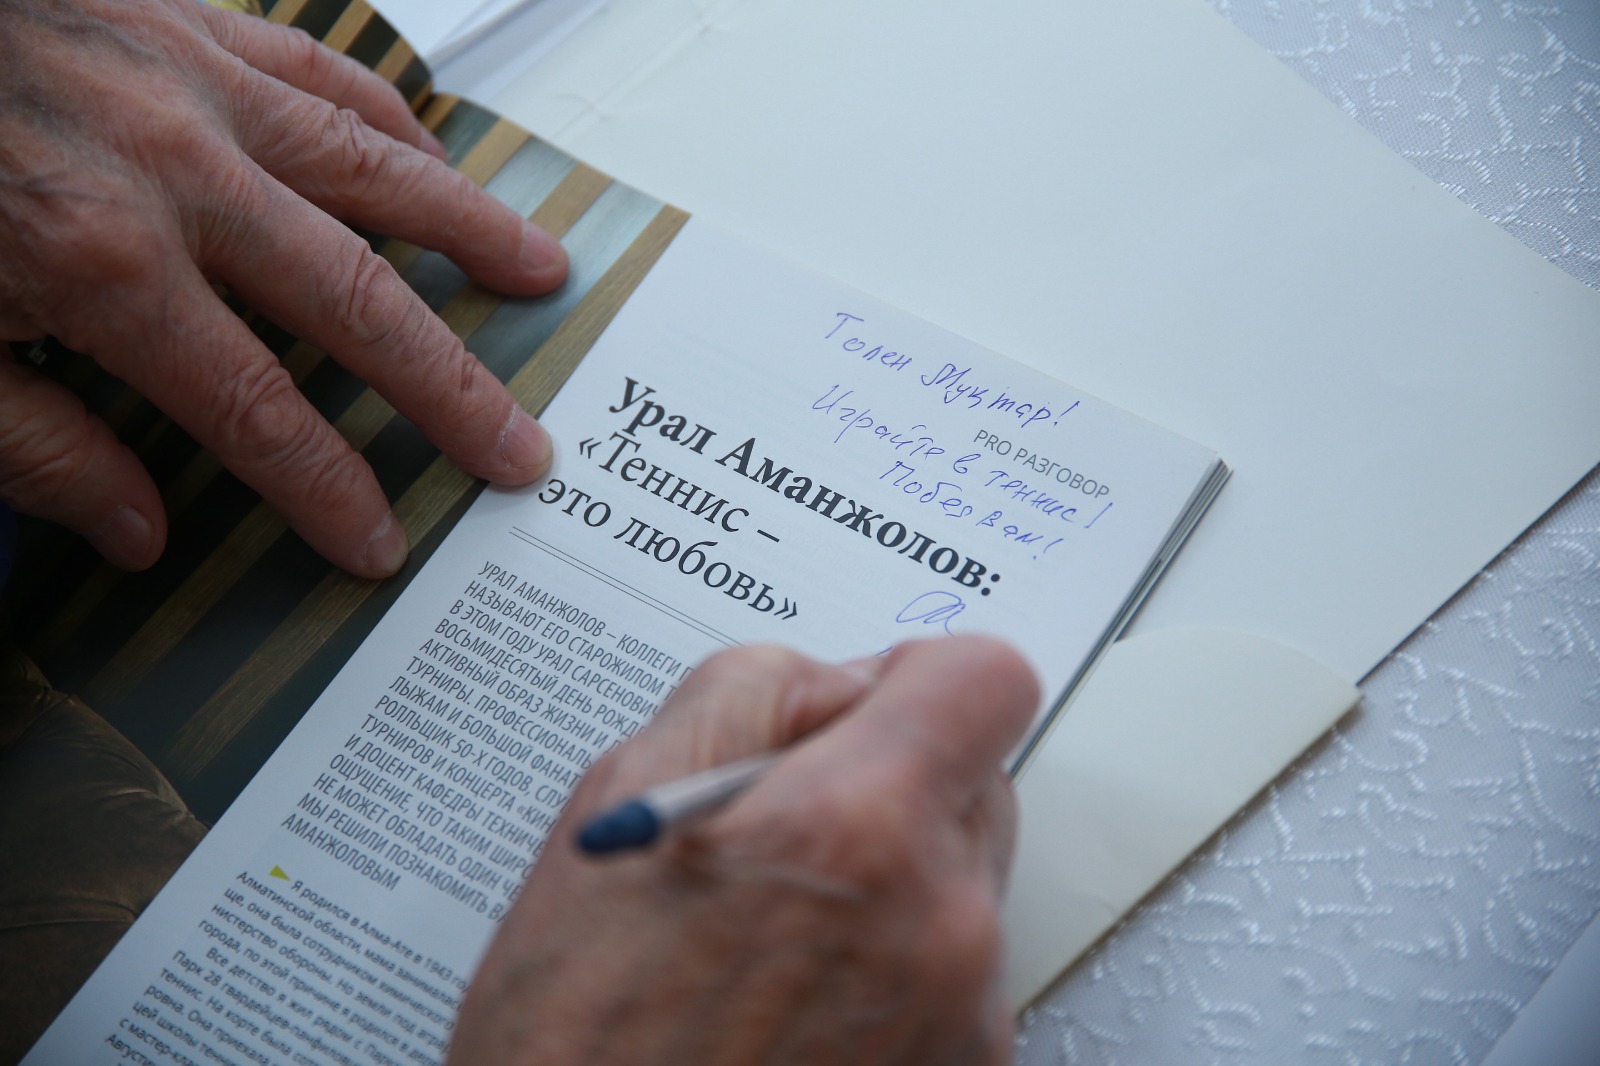 Толен Мұқтар!
PRO РАЗГОВОР
Играйте в теннис!
Побед Вам!
Урал Аманжолов:
«Теннис –
это любовь»
УРАЛ АМАНЖОЛОВ – КОЛЛЕГИ
НАЗЫВАЮТ ЕГО СТАРОЖИЛОМ
В ЭТОМ ГОДУ УРАЛ САРСЕНОВИЧ
ВОСЬМИДЕСЯТЫЙ ДЕНЬ РОЖД
АКТИВНЫЙ ОБРАЗ ЖИЗНИ И
ТУРНИРЫ. ПРОФЕССИОНАЛЬ
ЛЫЖАМ И БОЛЬШОЙ ФАНАТ
РОЛЛЬЩИК 50-Х ГОДОВ, СЛУ
ТУРНИРОВ И КОНЦЕРТА «КИН
И ДОЦЕНТ КАФЕДРЫ ТЕХНИЧЕ
ОЩУЩЕНИЕ, ЧТО ТАКИМ ШИРО
НЕ МОЖЕТ ОБЛАДАТЬ ОДИН ЧЕ
МЫ РЕШИЛИ ПОЗНАКОМИТЬ ВА
АМАНЖОЛОВЫМ
Я родился в Алма-Ате в 1943 го
Алматинской области, мама занималас
ще, она была сотрудником химического
нистерство обороны. Но земли под
города, по этой причине я родился в
Все детство я жил рядом с Парк
Парк 28 гвардейцев-панфилов
теннис. На корте была
ровна. Она приехала
цей школы тенни
с мастер-кла
Августи